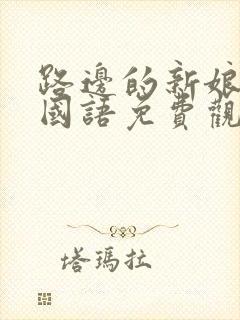 路邊的新娘
國語免費觀
塔瑪拉